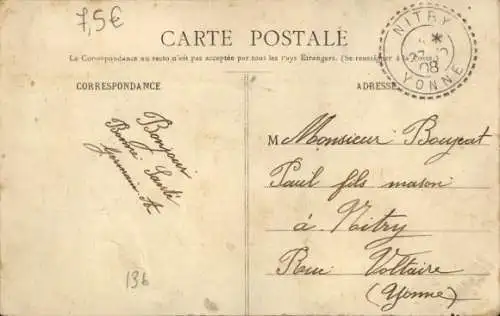 7,5€
CARTE POSTALE
La Correspondance au recto n'est pas acceptée par tous les pays Étrangers. (Se renseigner à la Poste)
NITRY
27
08
YONNE
CORRESPONDANCE
ADRESSE
Bonjour
Bonne Santé
Germain A
M Monsieur Boujeat
Paul fils mason
à Nitry
Rue Voltaire
(Yonne)
136